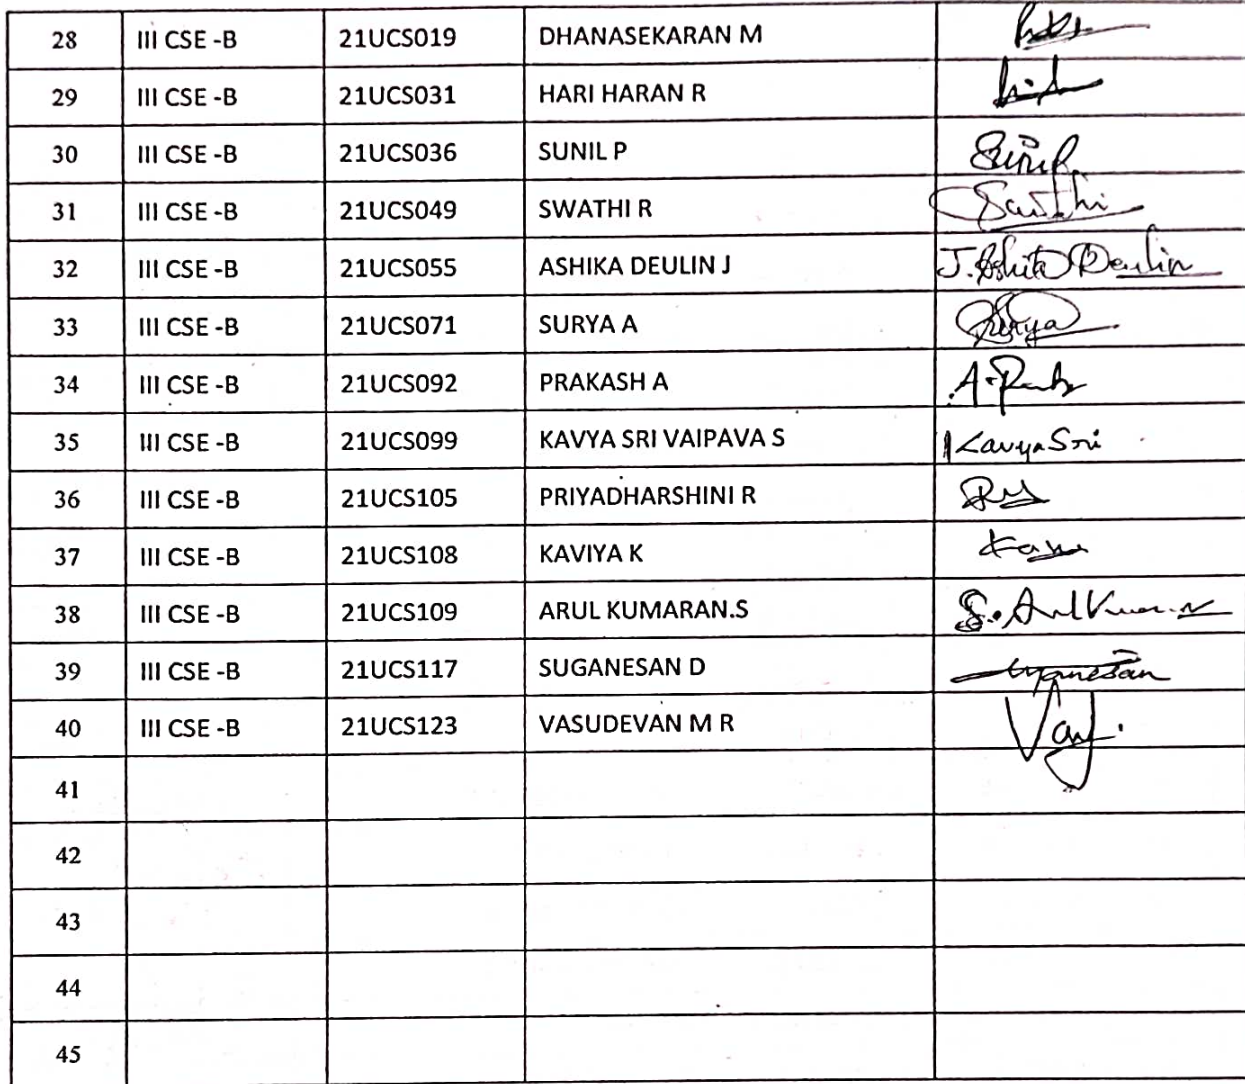 28 III CSE -B 21UCS019 DHANASEKARAN M
29 III CSE -B 21UCS031 HARI HARAN R
30 III CSE -B 21UCS036 SUNIL P Sunil
31 III CSE -B 21UCS049 SWATHI R Swathi
32 III CSE -B 21UCS055 ASHIKA DEULIN J J. Ashika Deulin
33 III CSE -B 21UCS071 SURYA A Surya
34 III CSE -B 21UCS092 PRAKASH A
35 III CSE -B 21UCS099 KAVYA SRI VAIPAVA S KavyaSri
36 III CSE -B 21UCS105 PRIYADHARSHINI R
37 III CSE -B 21UCS108 KAVIYA K
38 III CSE -B 21UCS109 ARUL KUMARAN.S
39 III CSE -B 21UCS117 SUGANESAN D
40 III CSE -B 21UCS123 VASUDEVAN M R
41
42
43
44
45